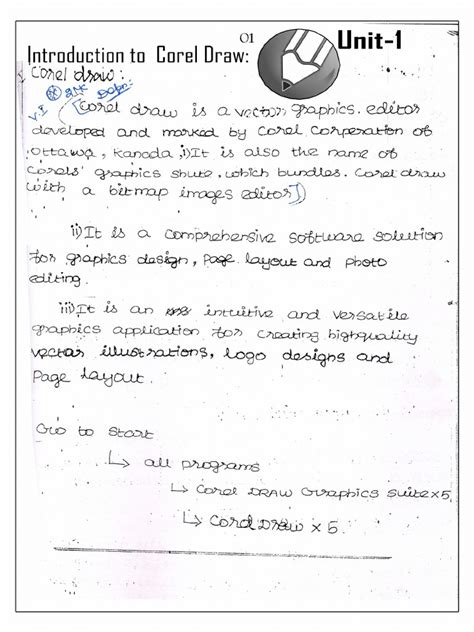 01
Unit-1
Introduction to Corel Draw:
Corel draw:
V.I [Corel draw is a vector graphics editor
developed and marked by Corel Corperation of
Ottawa, Kanada, i) It is also the name of
Corels' graphics shute, which bundles. Corel draw
with a bitmap images editor])
ii) It is a comprehensive software solution
for graphics design, Page layout and photo
editing.
iii) It is an intuitive and versatile
graphics application for creating highquality
vector illustrations, logo designs and
Page Layout.
Go to Start
↳ all programs
↳ Corel DRAW Graphics Suite x5.
↳ Corel DRAW x 5.